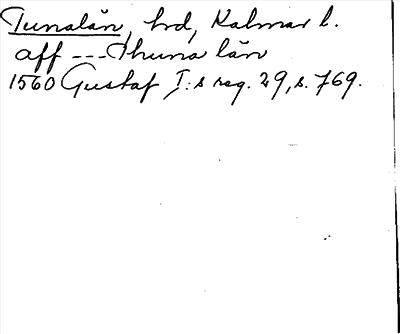 Tunalän, hrd, Kalmar l.
aff --- Thuna län
1560 Gustaf I:s reg. 29, s. 769.